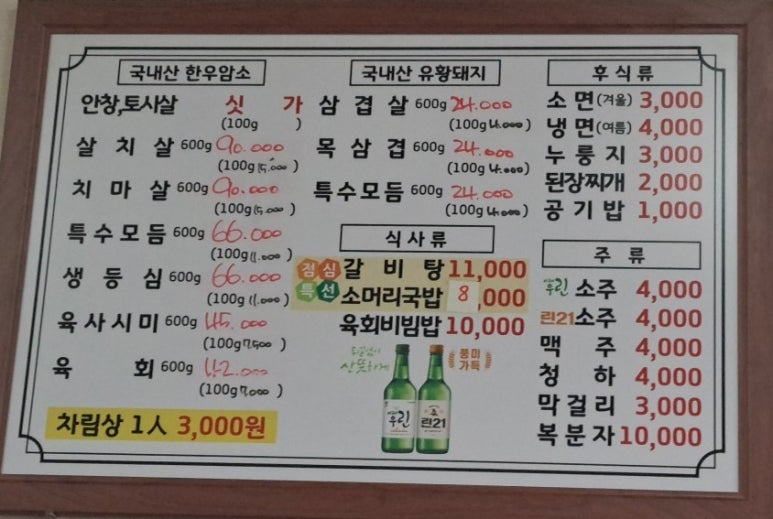 국내산 한우암소
안창,토사살 싯 가
(100g )
살치살 600g 90.000
(100g 15.000)
치마살 600g 90.000
(100g 15.000)
특수모듬 600g 66.000
(100g 11.000)
생등심 600g 66.000
(100g 11.000)
육사시미 600g 45.000
(100g 7.500)
육 회 600g 42.000
(100g 7.000)
차림상 1人 3,000원
국내산 유황돼지
삼겹살 600g 24.000
(100g 4.000)
목삼겹 600g 24.000
(100g 4.000)
특수모듬 600g 24.000
(100g 4.000)
식사류
점심
특선
갈비탕 11,000
소머리국밥 8,000
육회비빔밥 10,000
산뜻하게
풍미
가득
우린
린21
후식류
소면(겨울) 3,000
냉면(여름) 4,000
누룽지 3,000
된장찌개 2,000
공기밥 1,000
주 류
우린 소주 4,000
린21 소주 4,000
맥 주 4,000
청 하 4,000
막걸리 3,000
복분자 10,000